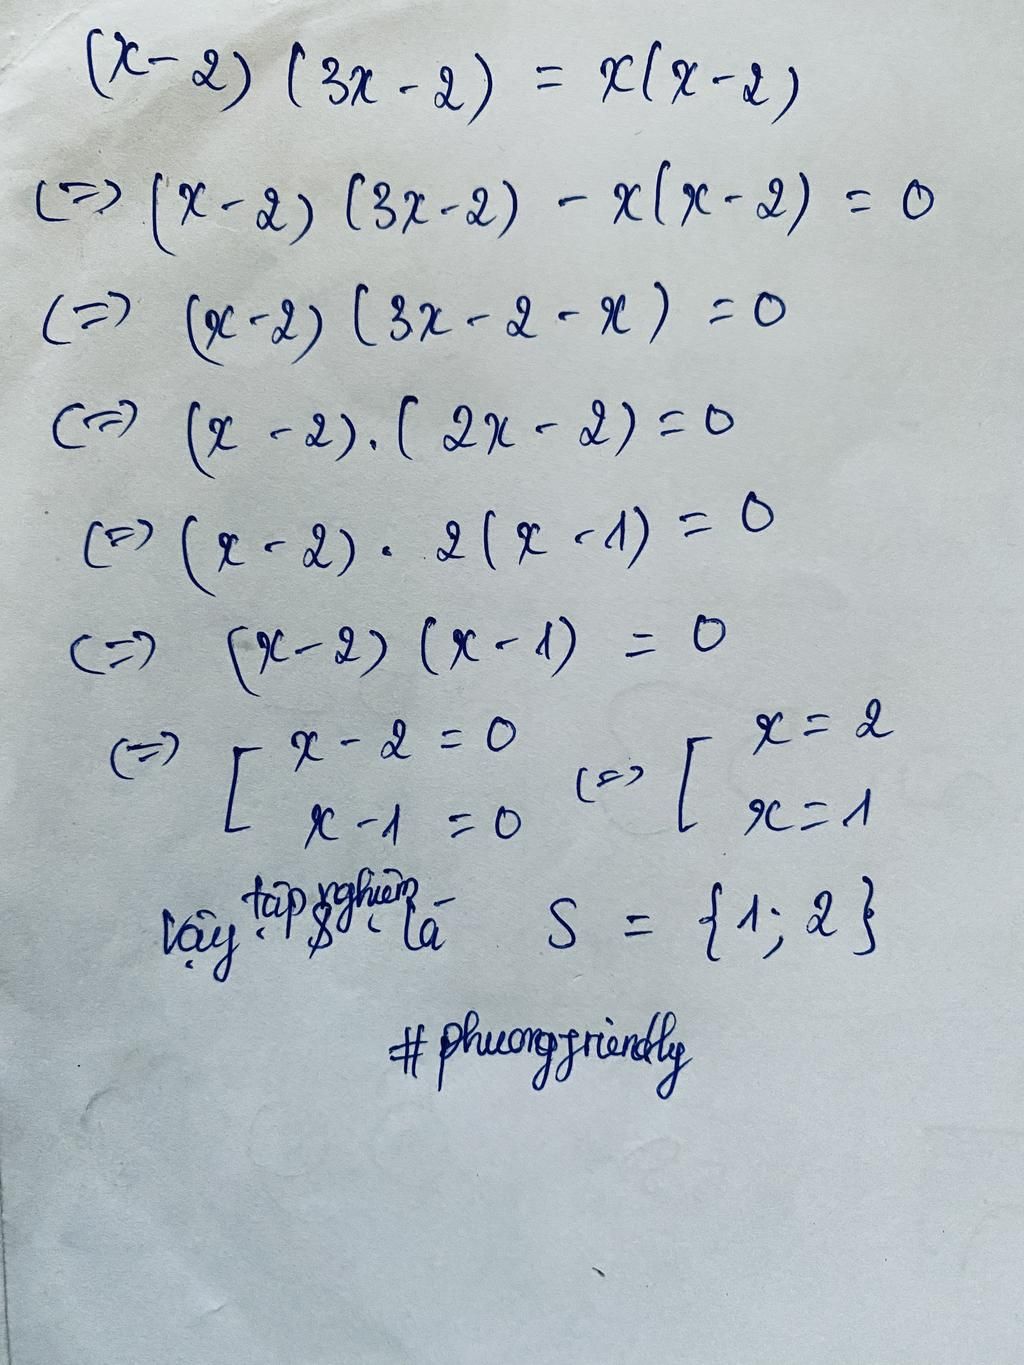 (x-2) (3x-2) = x(x-2)
(=) (x-2) (3x-2) - x(x-2) = 0
(=) (x-2) (3x-2-x) = 0
(=) (x-2).(2x-2) = 0
(=) (x-2) . 2(x-1) = 0
(=) (x-2) (x-1) = 0
(=) [ x-2 = 0 (=) [ x = 2
x-1 = 0 x = 1
Vậy tập nghiệm là S = {1; 2}
#phuongfriendly